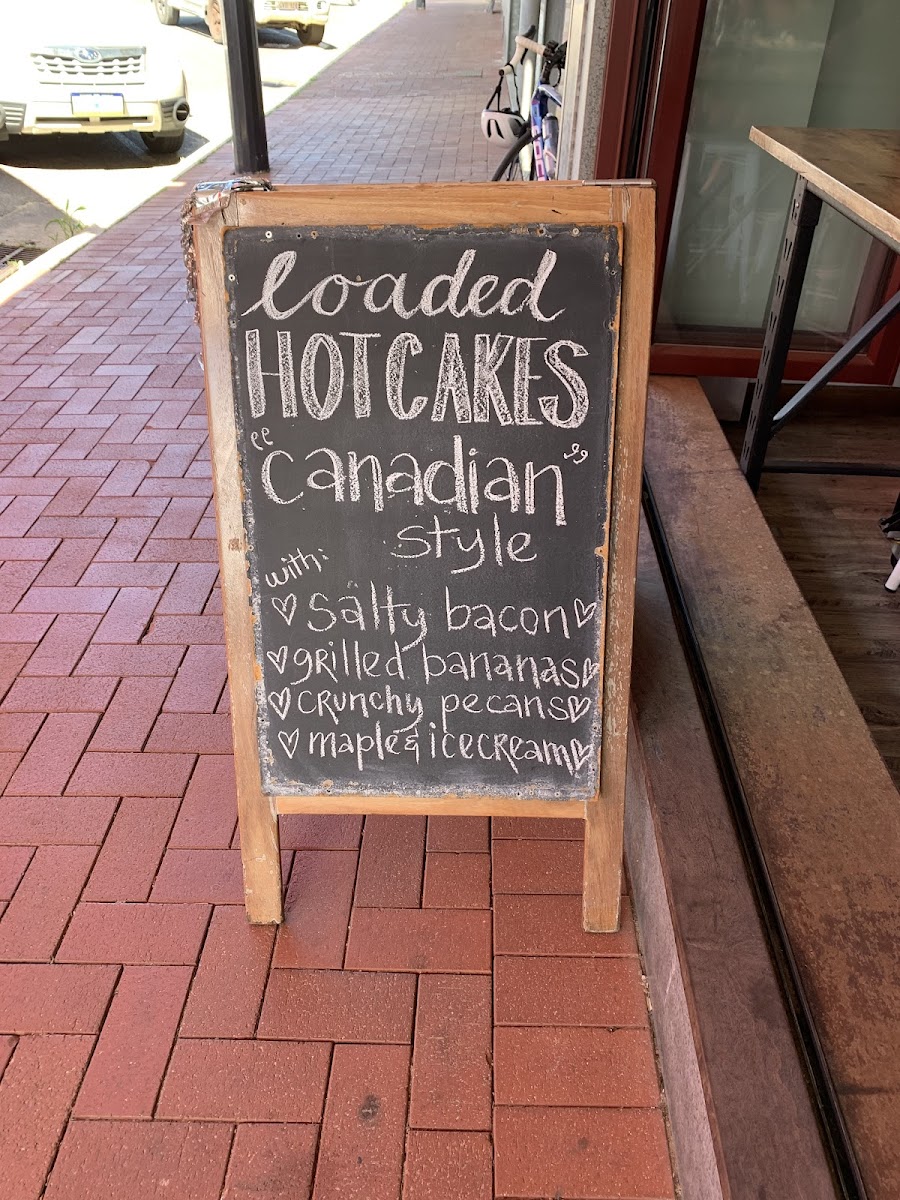 loaded
HOTCAKES
"Canadian"
style
with:
♡ salty bacon ♡
♡ grilled bananas ♡
♡ crunchy pecans ♡
♡ maple & icecream ♡